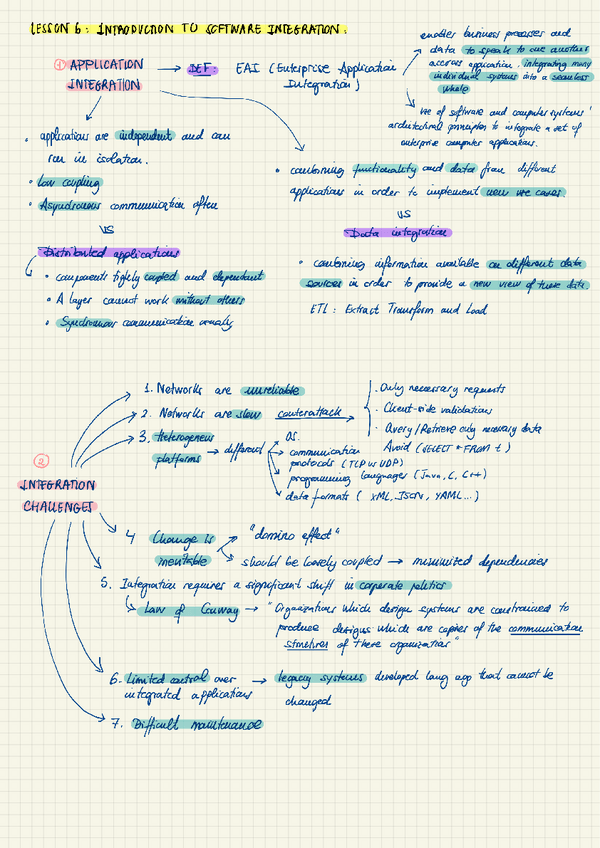 LESSON 6: INTRODUCTION TO SOFTWARE INTEGRATION:
① APPLICATION
INTEGRATION
DEF: EAI (Enterprise Application
Integration)
enables business processes and
data to speak to one another
accross application, integrating many
individual systems into a seamless
whole
use of software and computer systems'
architectural principles to integrate a set of
enterprise computer applications.
• applications are independent and can
run in isolation.
• Low coupling
• Asynchronous communication often
VS
Distributed applications
• components tightly coupled and dependent
• A layer cannot work without others
• Synchronous communication usually
• combining functionality and data from different
applications in order to implement new use cases
VS
Data integration
• combining information available on different data
sources in order to provide a new view of these data
ETL: Extract Transform and Load
② INTEGRATION
CHALLENGES
1. Networks are unreliable
2. Networks are slow counterattack
· Only necessary requests
· Client-side validations
· Query/Retrieve only necessary data
Avoid (SELECT * FROM t)
3. Heterogeneus
platforms → different
OS.
communication
protocols (TCP vs UDP)
programming languages (Java, C, C++)
data formats (XML, JSON, YAML...)
4 Change is
inevitable
"domino effect"
should be loosely coupled → minimized dependencies
5. Integration requires a significant shift in corporate politics
Law of Conway → "Organizations which design systems are constrained to
produce designs which are copies of the communication
structures of these organizations"
6. Limited control over
integrated applications
→ legacy systems developed long ago that cannot be
changed
7. Difficult maintenance